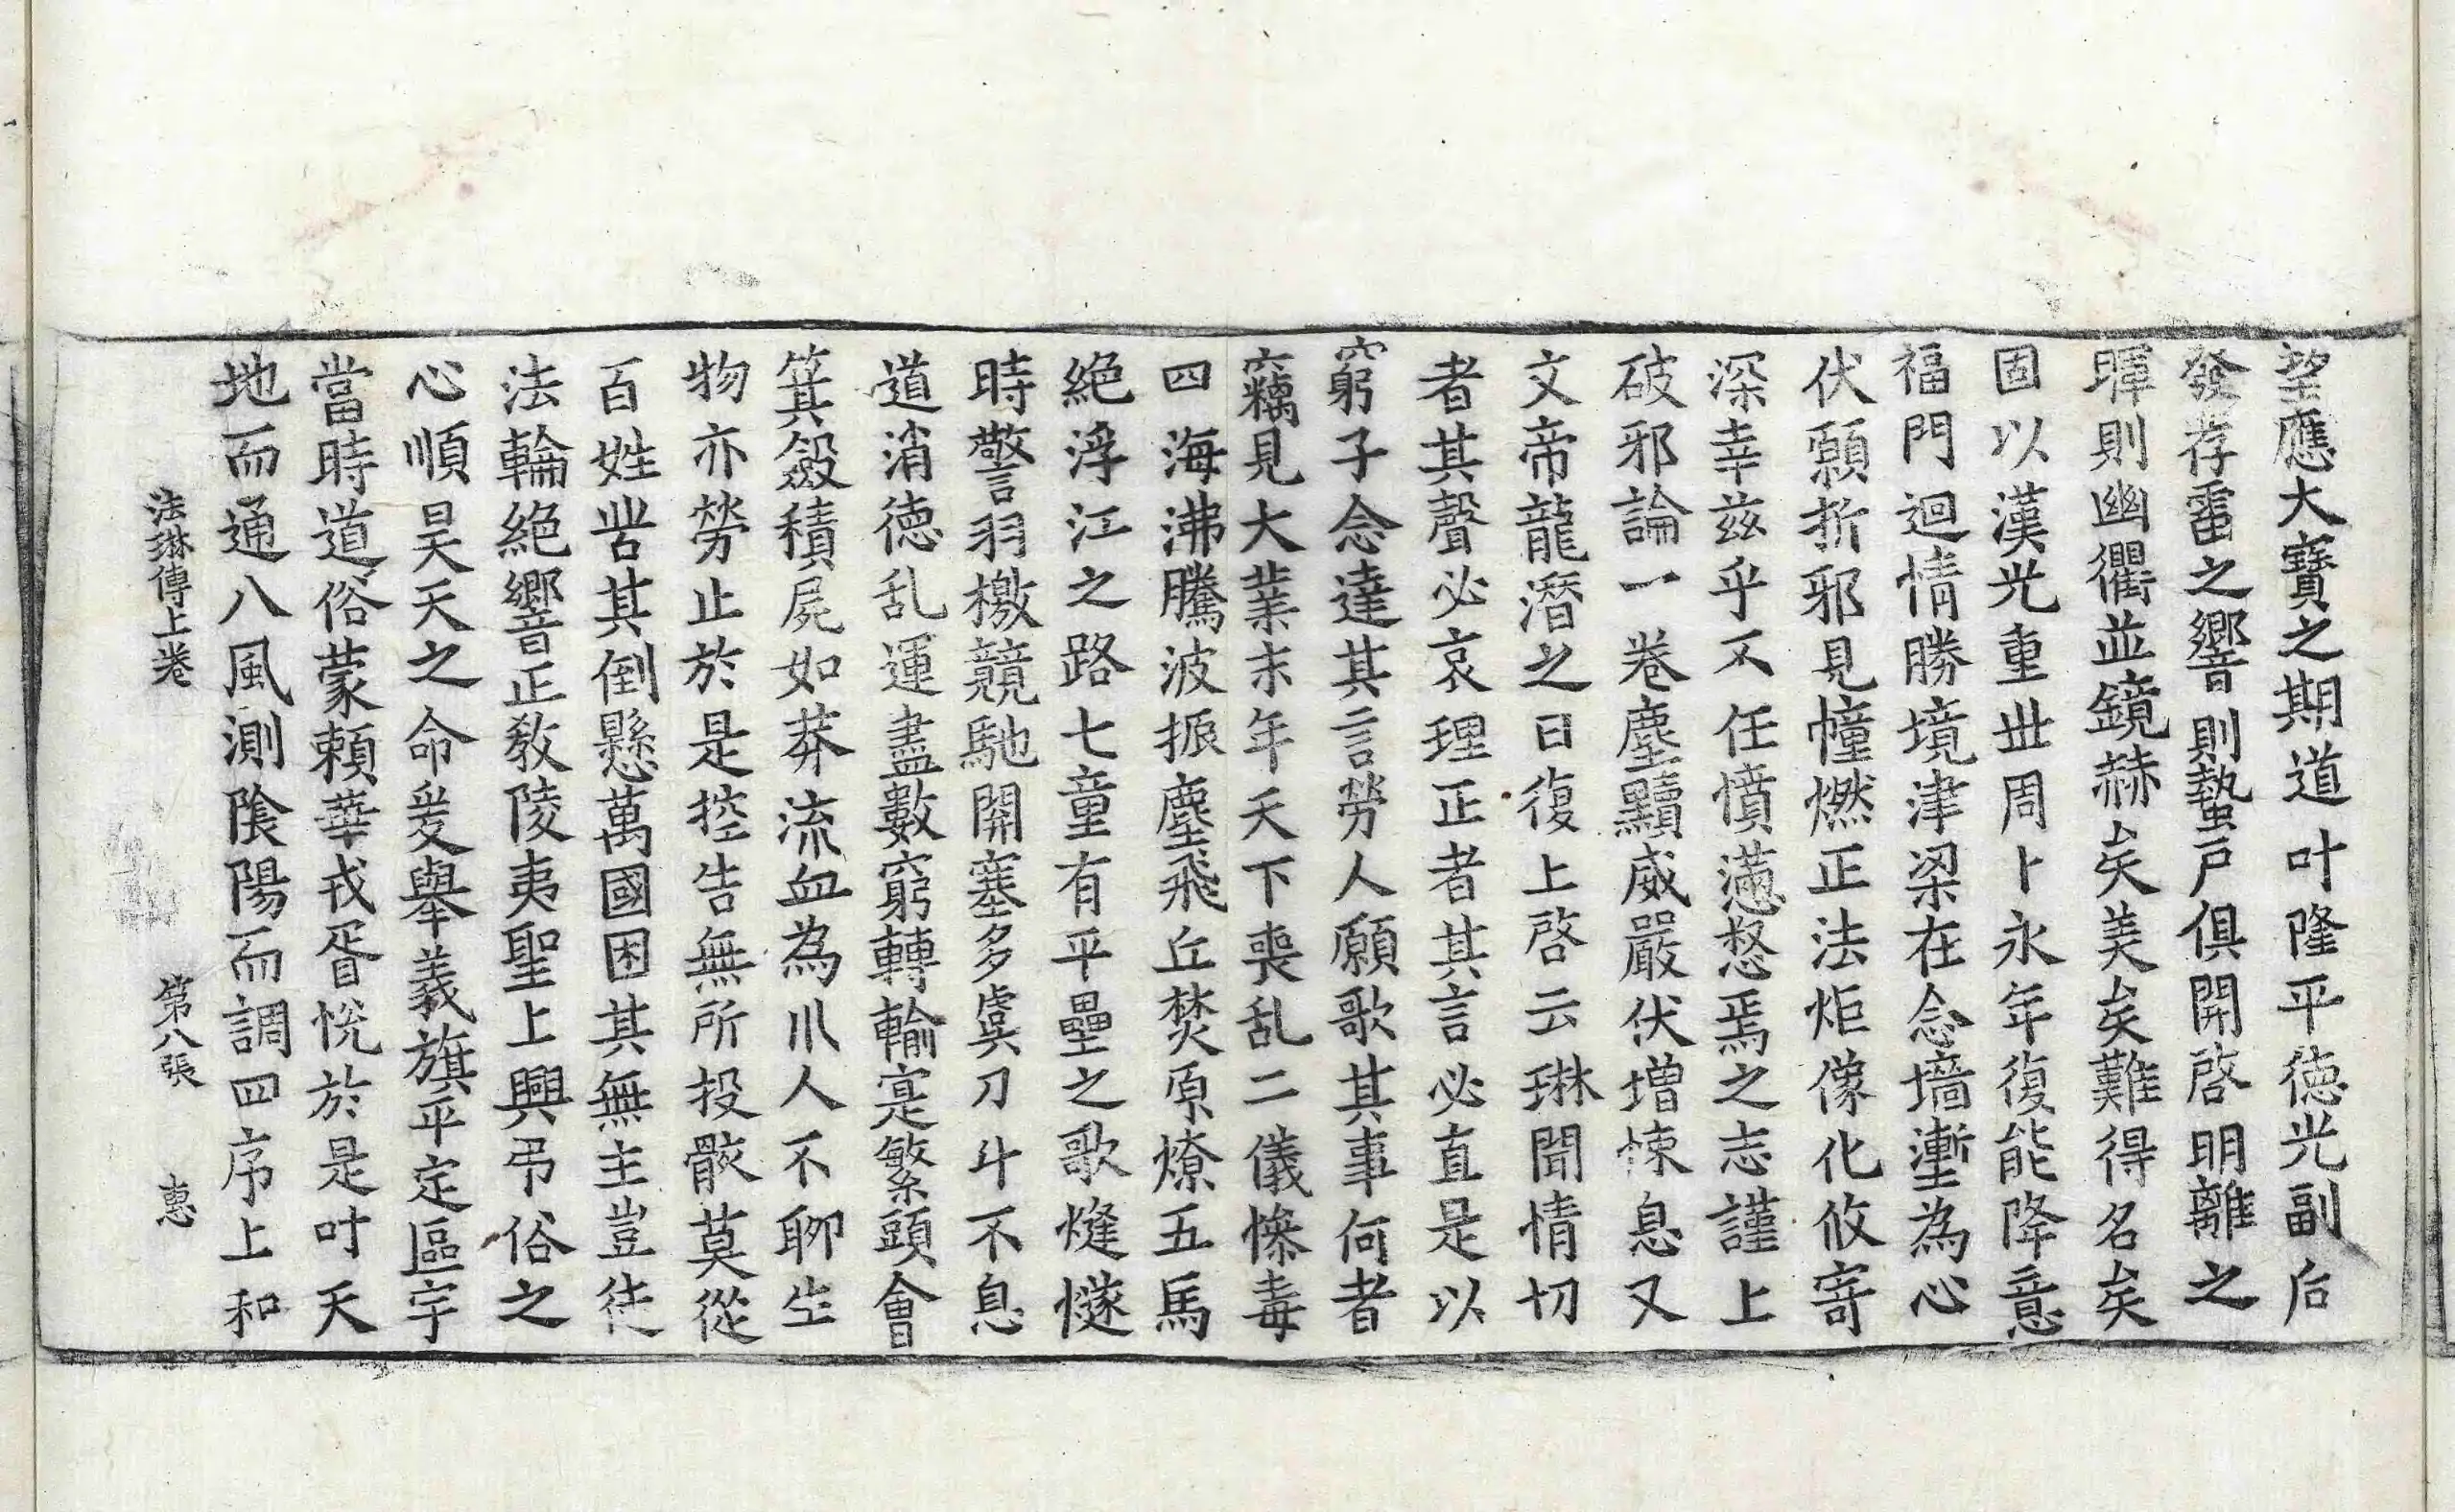 望應大寶之期道叶隆平德光副后
發存雷之響則蟄戶俱開啓明離之
暉則幽衢並鏡赫矣美矣難得名矣
固以漢光重丗周卜永年復能降意
福門迴情勝境津梁在念墻壍為心
伏願折邪見幢燃正法炬像化攸寄
深幸茲乎不任憤懣愁焉之志謹上
破邪論一卷塵黷威嚴伏增悚息又
文帝龍潛之日復上啓云琳聞情切
者其聲必哀理正者其言必直是以
窮子念達其言勞人願歌其事何者
竊見大業末年天下喪乱二儀慘毒
四海沸騰波振塵飛丘焚原燎五馬
絕浮江之路七童有平壘之歌燧燧
時警羽檄競馳開塞多虞刀斗不息
道消德乱運盡數窮轉輸寔繁頭會
箕斂積屍如莽流血為川人不聊生
物亦勞止於是控告無所投骸莫從
百姓苦其倒懸萬國困其無主豈徒
法輪絕響正教陵夷聖上興弔俗之
心順昊天之命爰舉義旗平定區宇
當時道俗蒙賴華戎胥悅於是叶天
地而通八風測陰陽而調四序上和
法琳傳上卷 第八張 惠